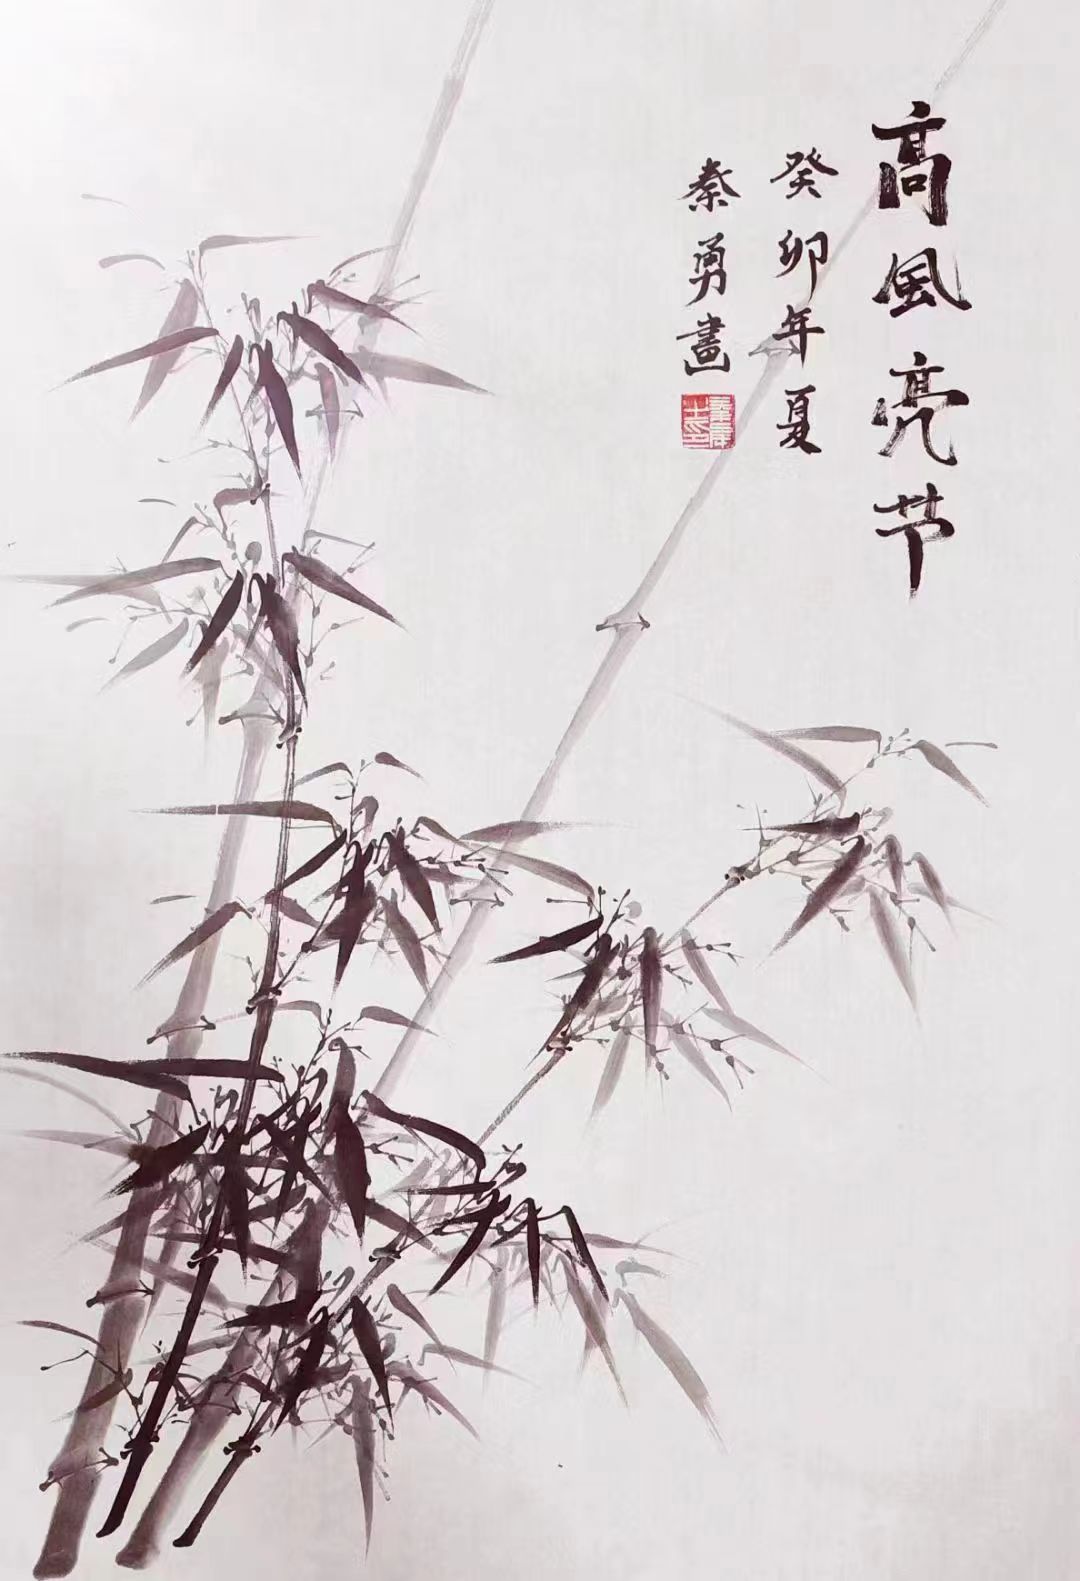 高風亮节
癸卯年夏
秦勇畫